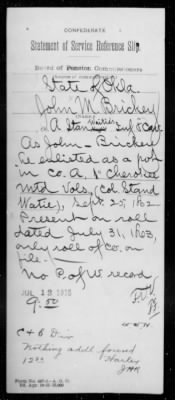 CONFEDERATE
Statement of Service Reference Slip.
Board of Pension Commissioners
State of Okla.
John M. Brickey
Co A Stan Waities Inf & Cav
As John - Brickey
he enlisted as a pvt
in Co. A, 1" Cherokee
Mtd Vols, (Col Stand
Watie), Sept. 25, 1862
Present on roll
dated July 31, 1863,
only roll of co. on
file.
No P of W record
JUL 13 1915
9:50
C & B Div
Nothing addl. found
1200 Harley